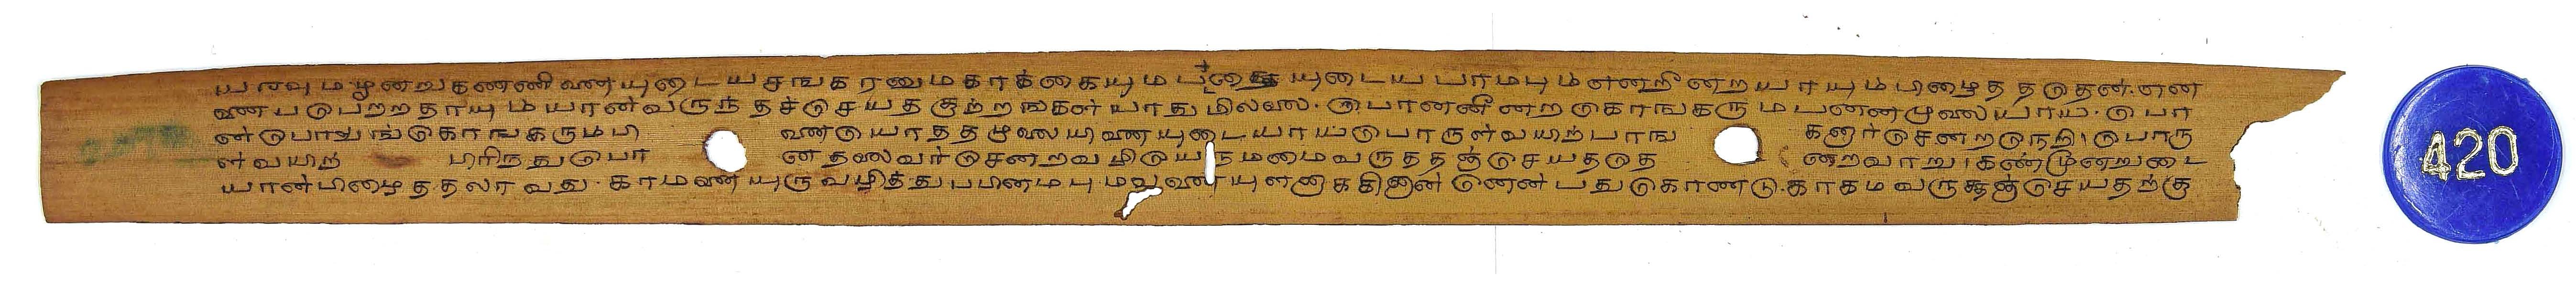 யரவும மூனறுகணணினையுடைய சஙகரனுமகாக்கையும யுடைய பாமபும் எனறீனற யாயும் பிழைதததெதன். என
னைபெபறறதாயும் யான்வருந்தச்செயத குற்றஙகள் யாதுமிலலை. பொனனீனறகோஙகருமபனனமுலையாய. பொ
ன்போலுங்கோஙகருமபி னையொதத முலையினையுடையாய பொருள்வயிற்பாங கனார்சேனறநெறி। பொரு
ள்வயிற் பிரிநதுபோ ன தலைவர்சேனறவழியே நமமைவருததஞ்செயததெ னறவாறு। கண்மூனறுடை
யான்பிழைத்தலாவது. காமனையுருவழித்து பபினமபுமவனையுளனாககினான் என்பதுகொணடு. காகமவருத்தஞ்செயதற்கு
420